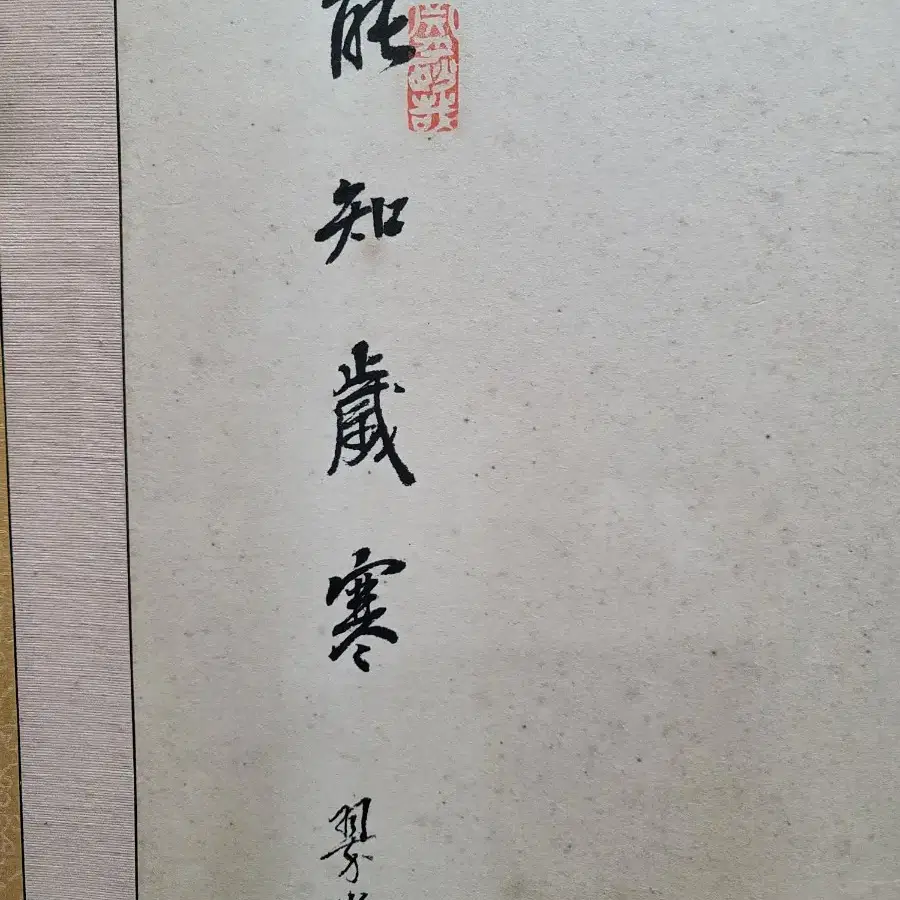 能知歲寒 翠